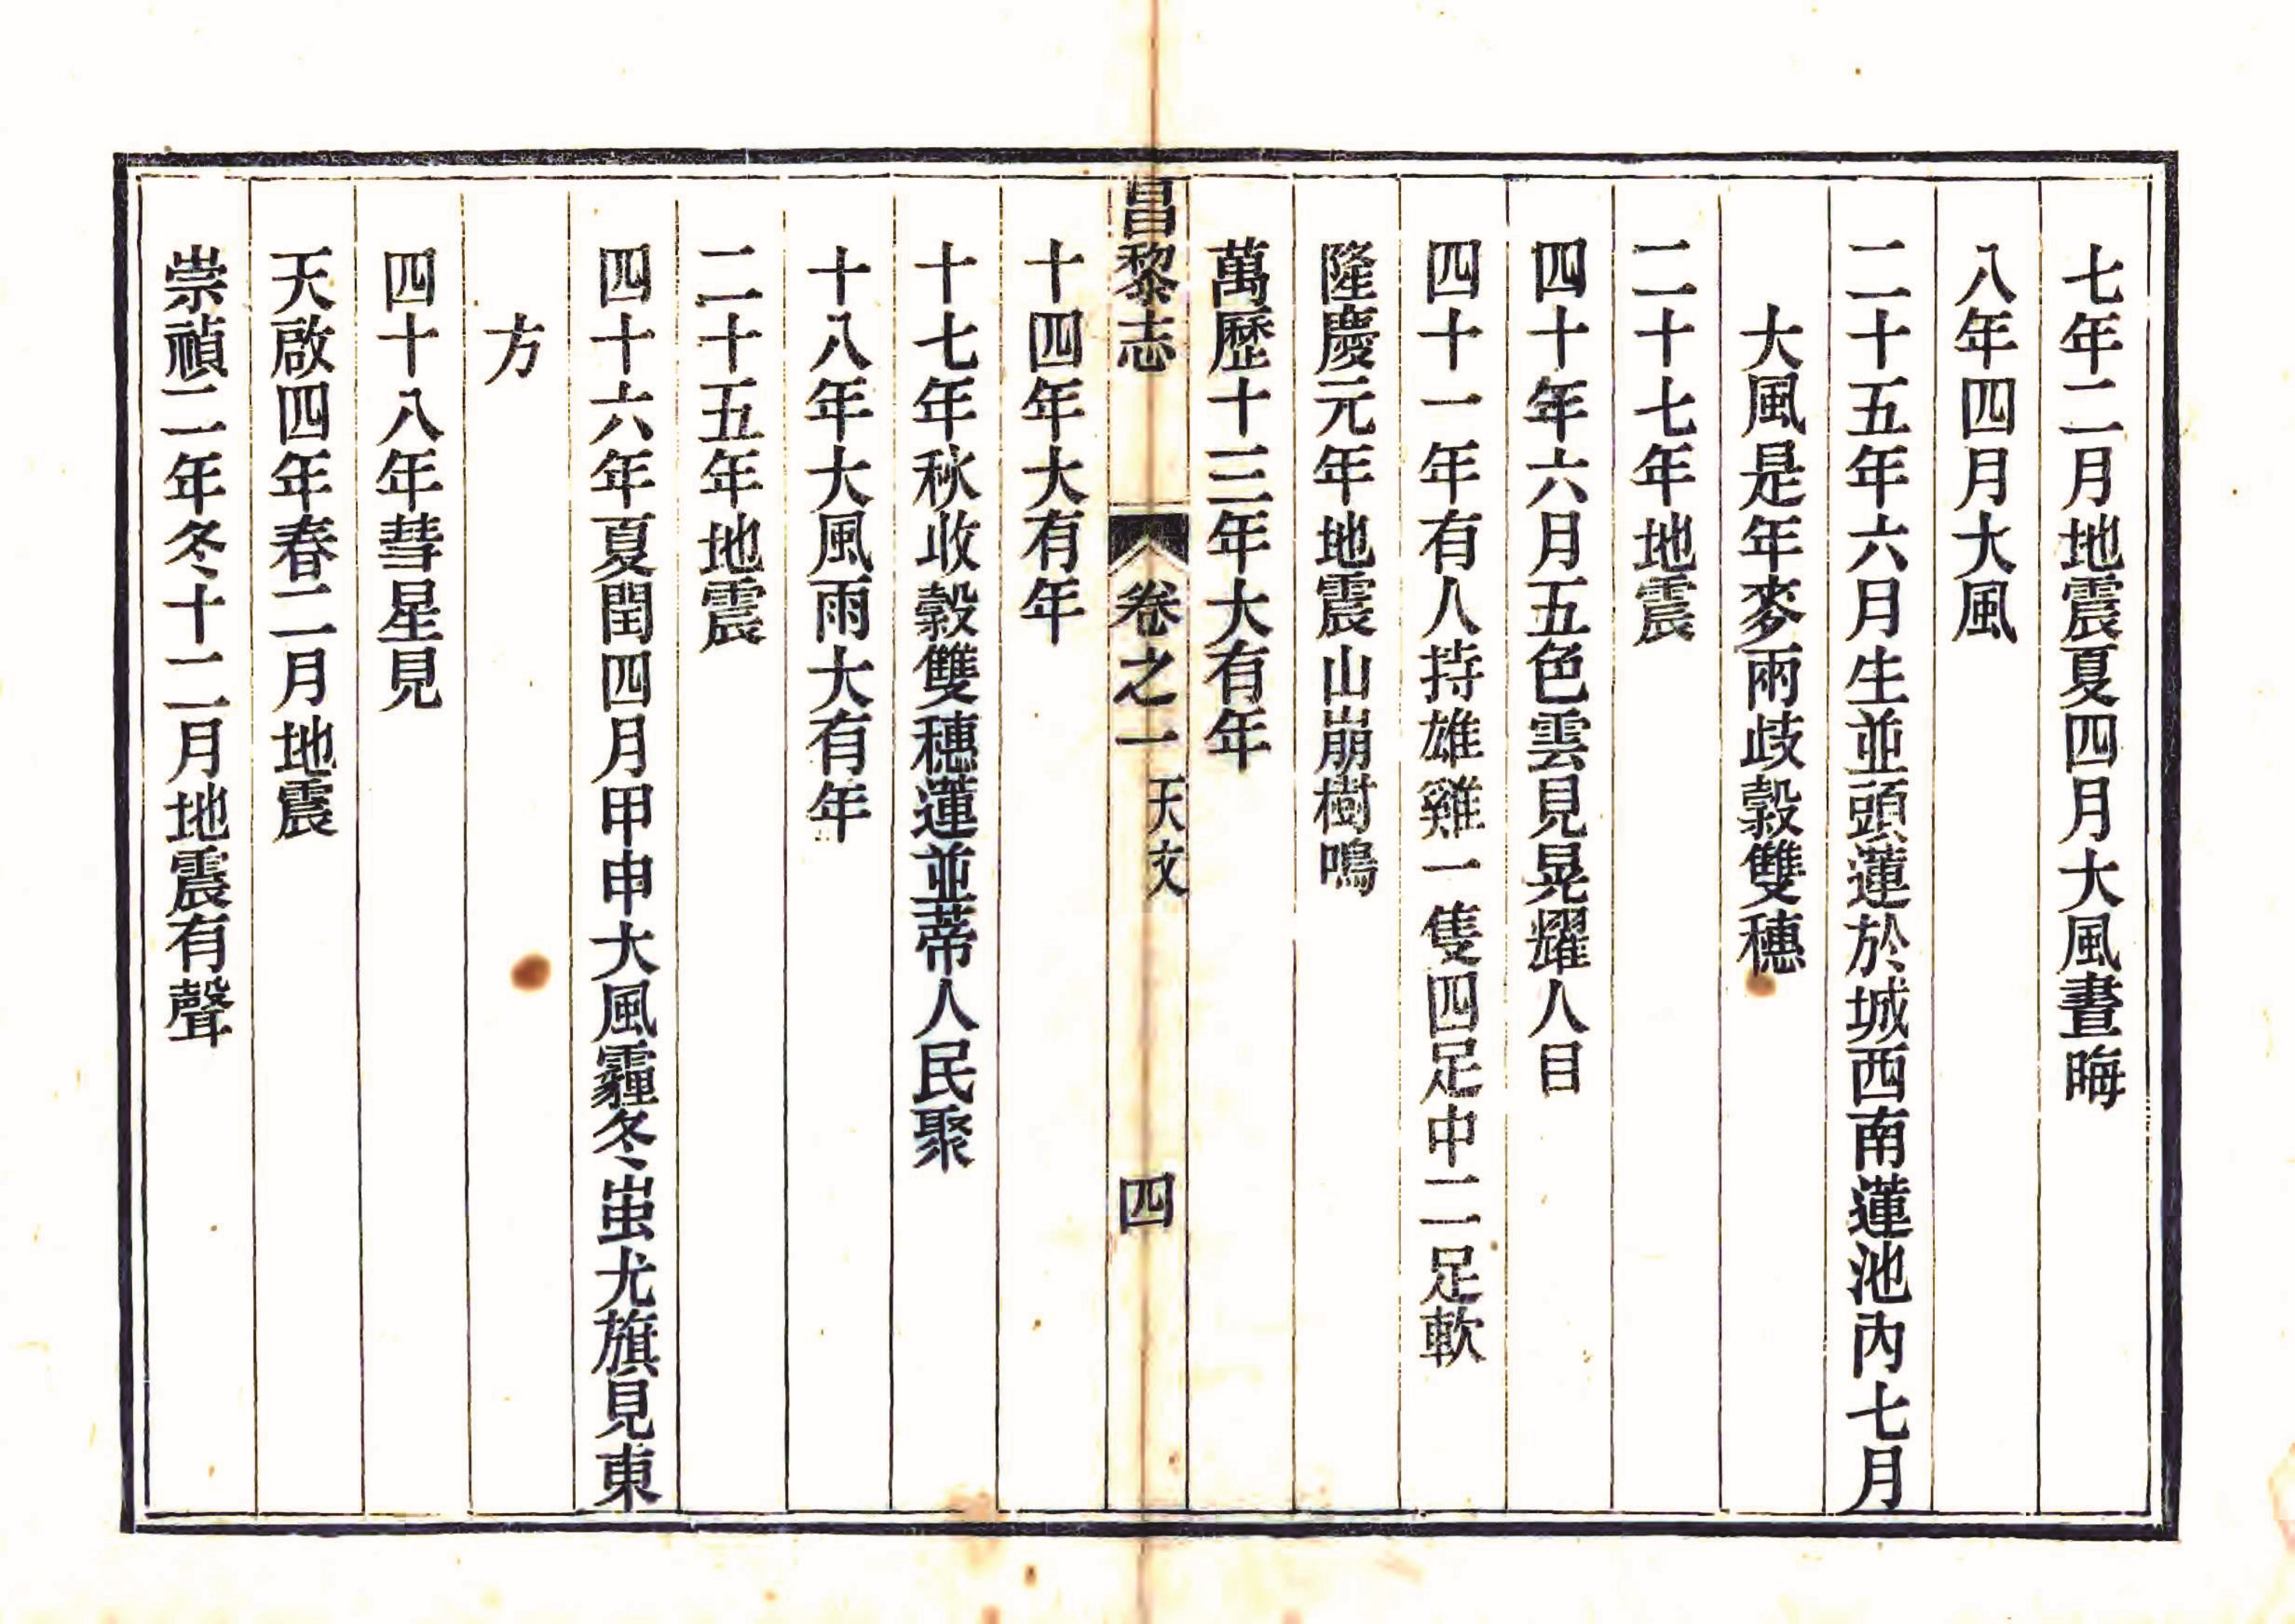 七年二月地震夏四月大風晝晦
八年四月大風
二十五年六月生並頭蓮於城西南蓮池內七月
大風是年麥兩歧穀雙穗
二十七年地震
四十年六月五色雲見晃耀人目
四十一年有人持雄雞一隻四足中二足軟
隆慶元年地震山崩樹鳴
萬歷十三年大有年
昌黎志 卷之一 天文 四
十四年大有年
十七年秋收穀雙穗蓮並蒂人民聚
十八年大風雨大有年
二十五年地震
四十六年夏閏四月甲申大風霾冬蚩尤旗見東
方
四十八年彗星見
天啟四年春二月地震
崇禎二年冬十二月地震有聲